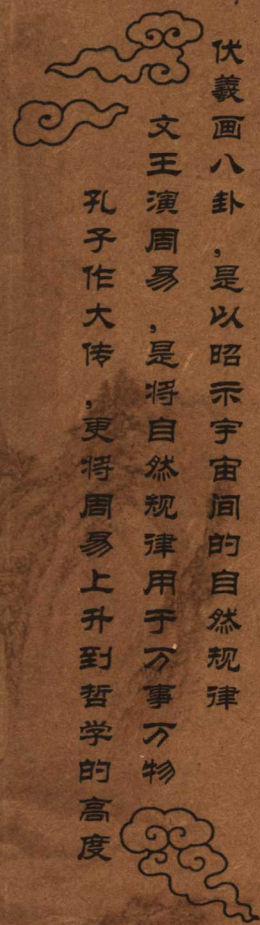 伏羲画八卦，是以昭示宇宙间的自然规律
文王演周易，是将自然规律用于万事万物
孔子作大传，更将周易上升到哲学的高度